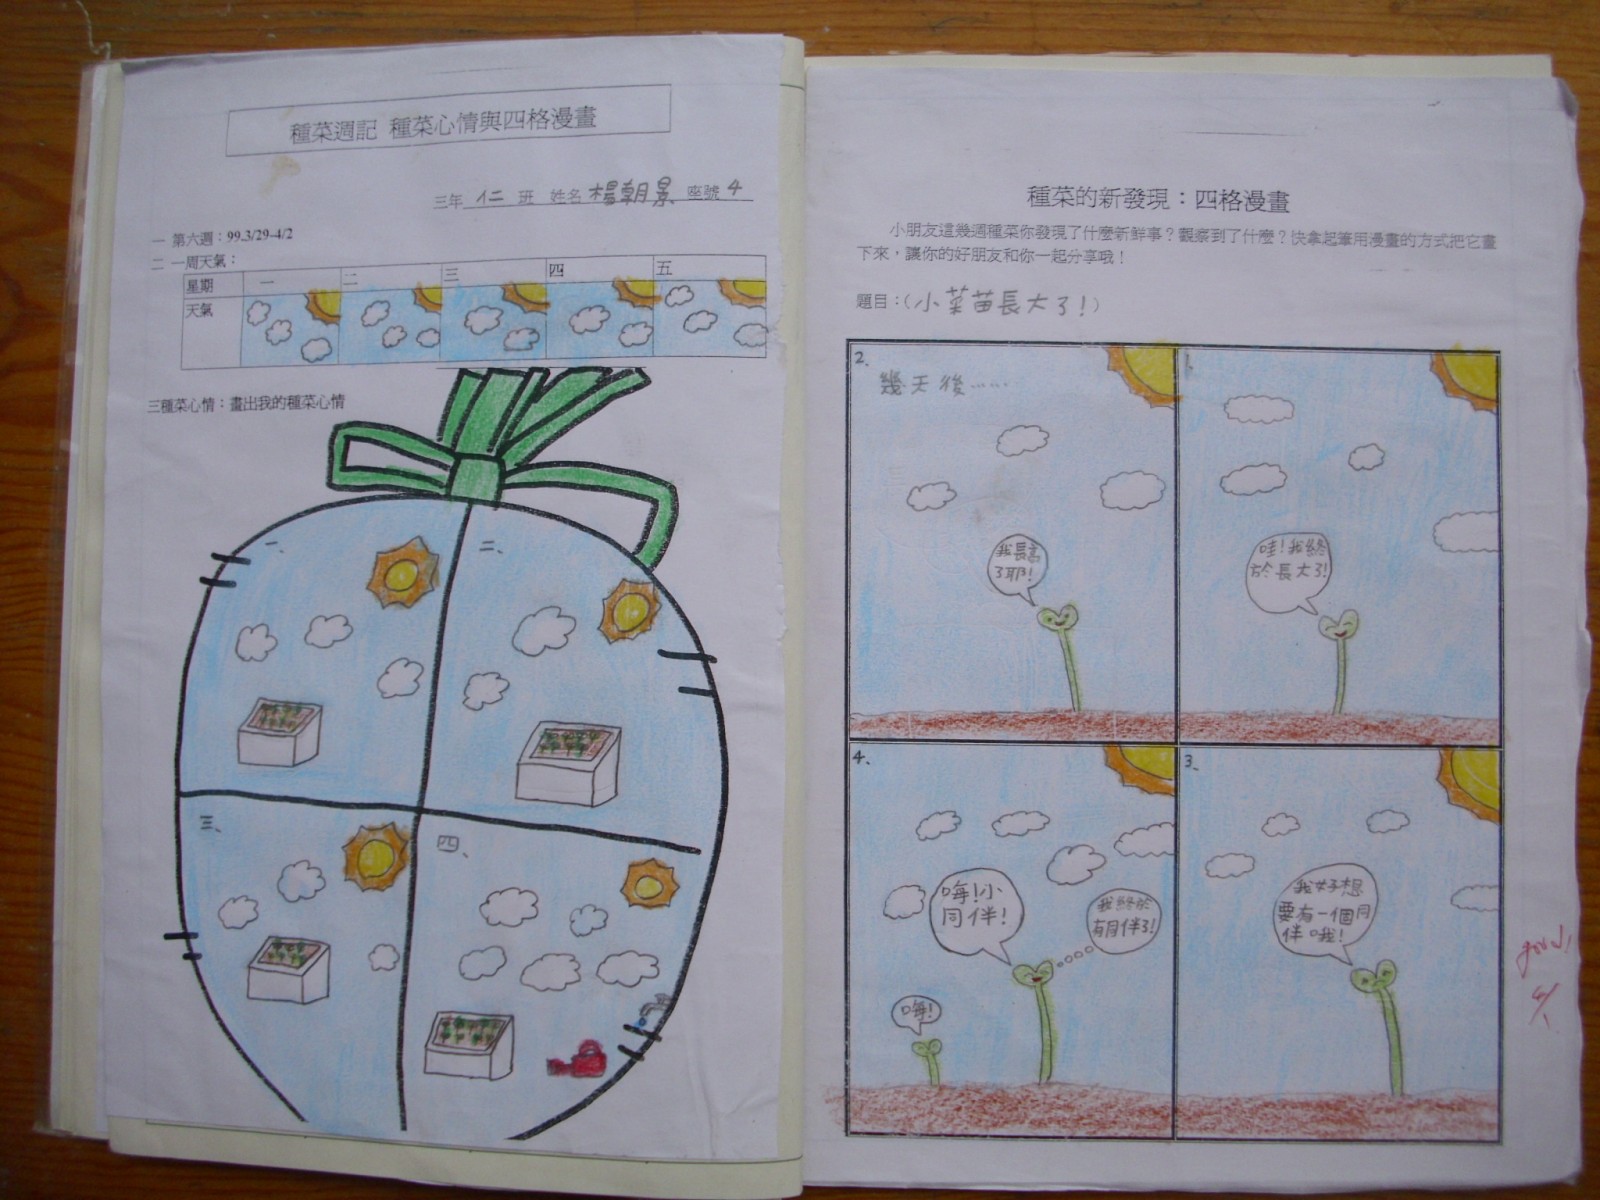 種菜週記 種菜心情與四格漫畫
三年 仁 班 姓名 楊朝景 座號 4
一 第六週：99.3/29-4/2
二 一周天氣：
星期 一 二 三 四 五
天氣
三種菜心情：畫出我的種菜心情
一、
二、
三、
四、
種菜的新發現：四格漫畫
小朋友這幾週種菜你發現了什麼新鮮事？觀察到了什麼？快拿起筆用漫畫的方式把它畫
下來，讓你的好朋友和你一起分享哦！
題目：(小菜苗長大了!)
1.
哇!我終
於長大了!
2.
幾天後……
我長高
了耶!
3、
我好想
要有一個同
伴哦!
4、
嗨!小
同伴!
我終於
有同伴了!
嗨!